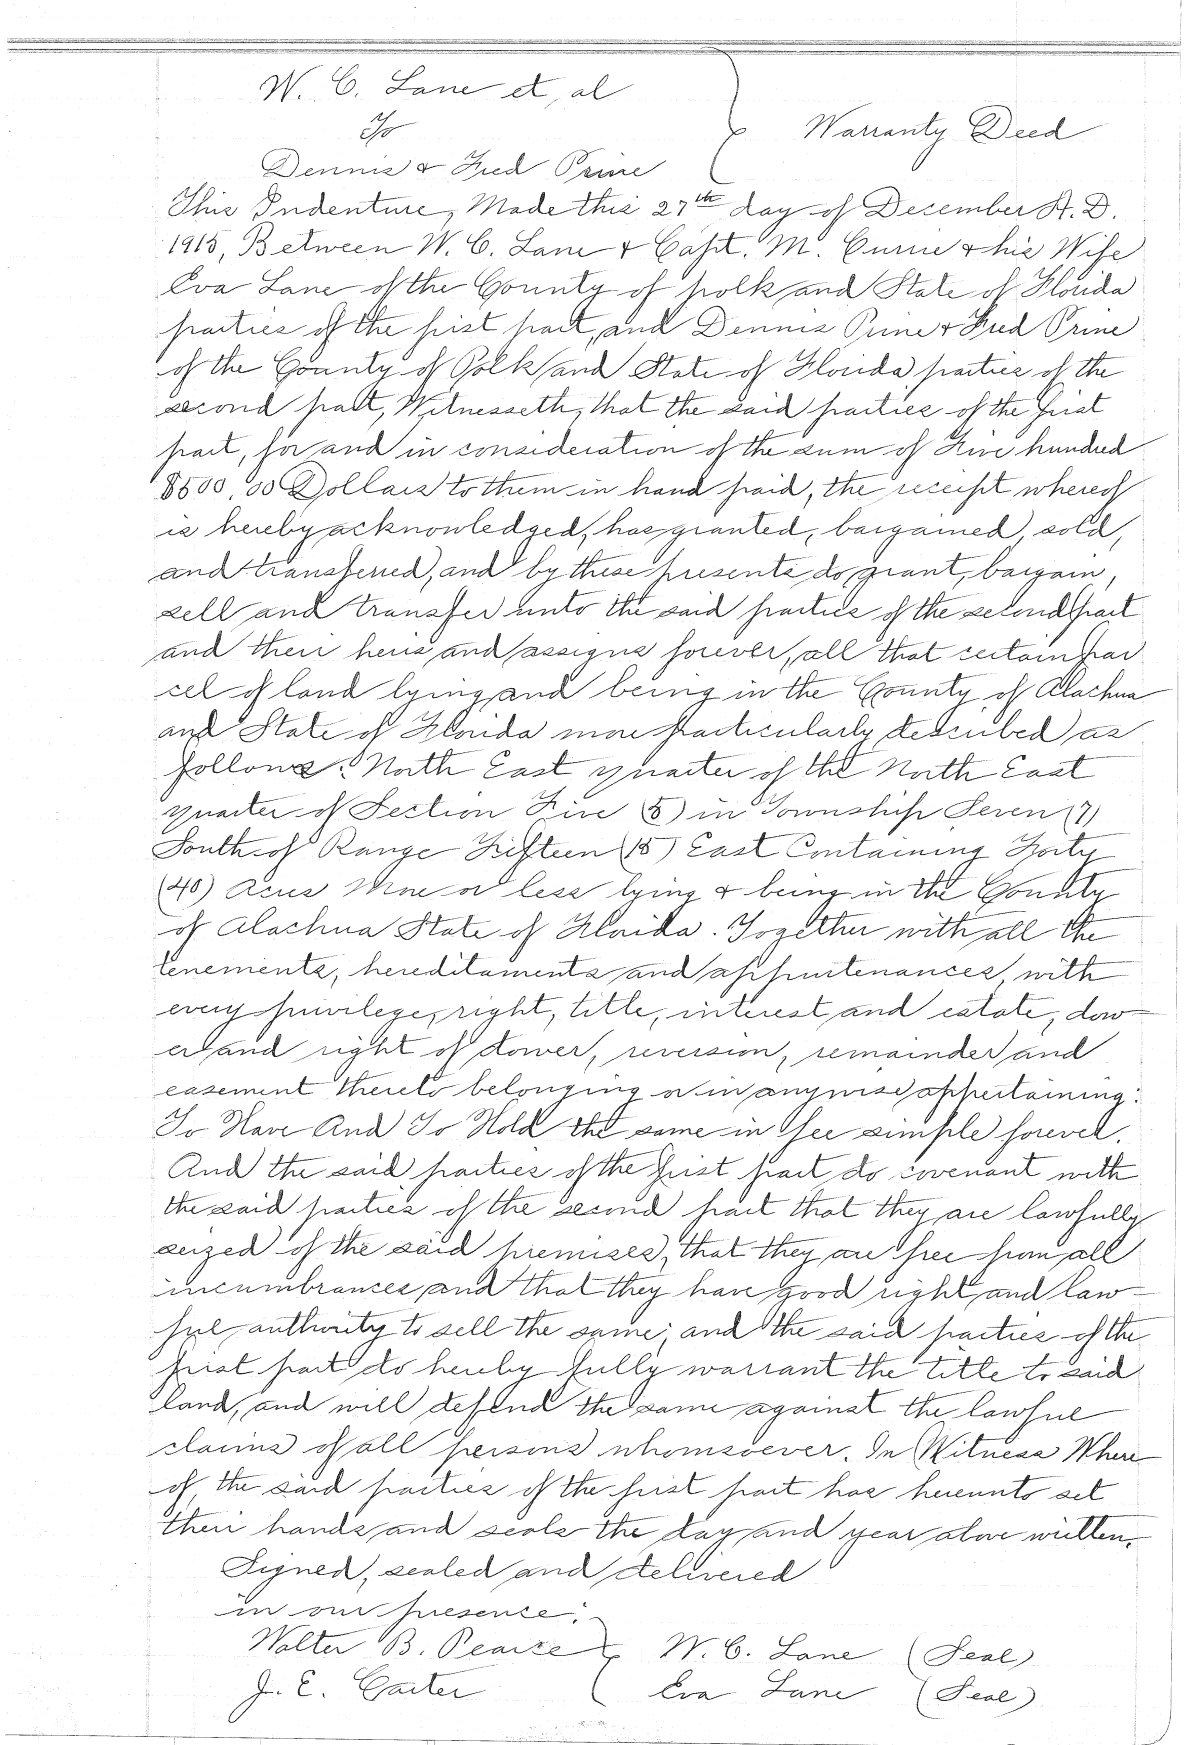 W. C. Lane et, al
To
Warranty Deed
Dennis & Fred Prine
This Indenture, Made this 27th day of December A. D.
1915, Between W. C. Lane & Capt. M. Currie & his Wife
Eva Lane of the County of polk and State of Florida
parties of the first part, and Dennis Prine & Fred Prine
of the County of Polk and State of Florida parties of the
second part, Witnesseth, that the said parties of the first
part, for and in consideration of the sum of Five hundred
$500.00 Dollars to them in hand paid, the receipt whereof
is hereby acknowledged, has granted, bargained, sold,
and transferred, and by these presents do grant, bargain,
sell and transfer unto the said parties of the second part
and their heirs and assigns forever, all that certain par
cel of land lying and being in the County of Alachua
and State of Florida more particularly described as
follows: North East quarter of the North East
quarter of Section Five (5) in Township Seven (7)
South of Range Fifteen (15) East Containing Forty
(40) Acres More or less lying & being in the County
of Alachua State of Florida. Together with all the
tenements, hereditaments and appurtenances, with
every privilege, right, title, interest and estate, dow-
er and right of dower, reversion, remainder and
easement thereto belonging or in anywise appertaining:
To Have And To Hold the same in fee simple forever.
And the said parties of the first part do covenant with
the said parties of the second part that they are lawfully
seized of the said premises, that they are free from all
incumbrances, and that they have good right and law-
ful authority to sell the same; and the said parties of the
first part do hereby fully warrant the title to said
land, and will defend the same against the lawful
claims of all persons whomsoever. In Witness Where
of, the said parties of the first part has hereunto set
their hands and seals the day and year above written.
Signed, sealed and delivered
in our presence:
Walter B. Pearce W. C. Lane (Seal)
J. E. Carter Eva Lane (Seal)